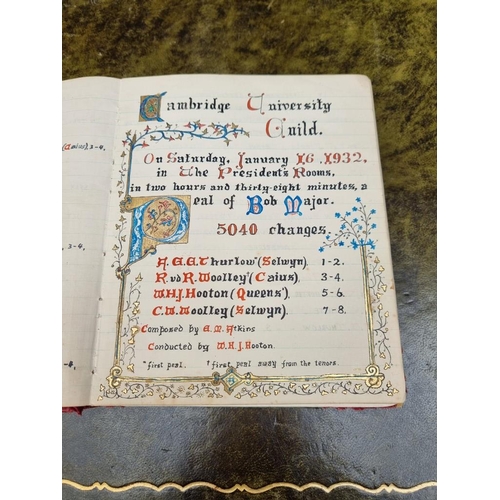 Cambridge University
Guild.
(Caius), 3-4,
On Saturday, January 16, 1932,
in The President's Rooms,
in two hours and thirty-eight minutes, a
Peal of Bob Major.
5040 changes.
A.E.G. Thurlow* (Selwyn), 1-2.
R.v.d.R. Woolley† (Caius), 3-4.
W.H.J. Hooton (Queens'), 5-6.
C.W. Woolley (Selwyn), 7-8.
3-4,
Composed by E.M. Atkins
Conducted by W.H.J. Hooton.
*first peal. †first peal away from the tenors.
-8,